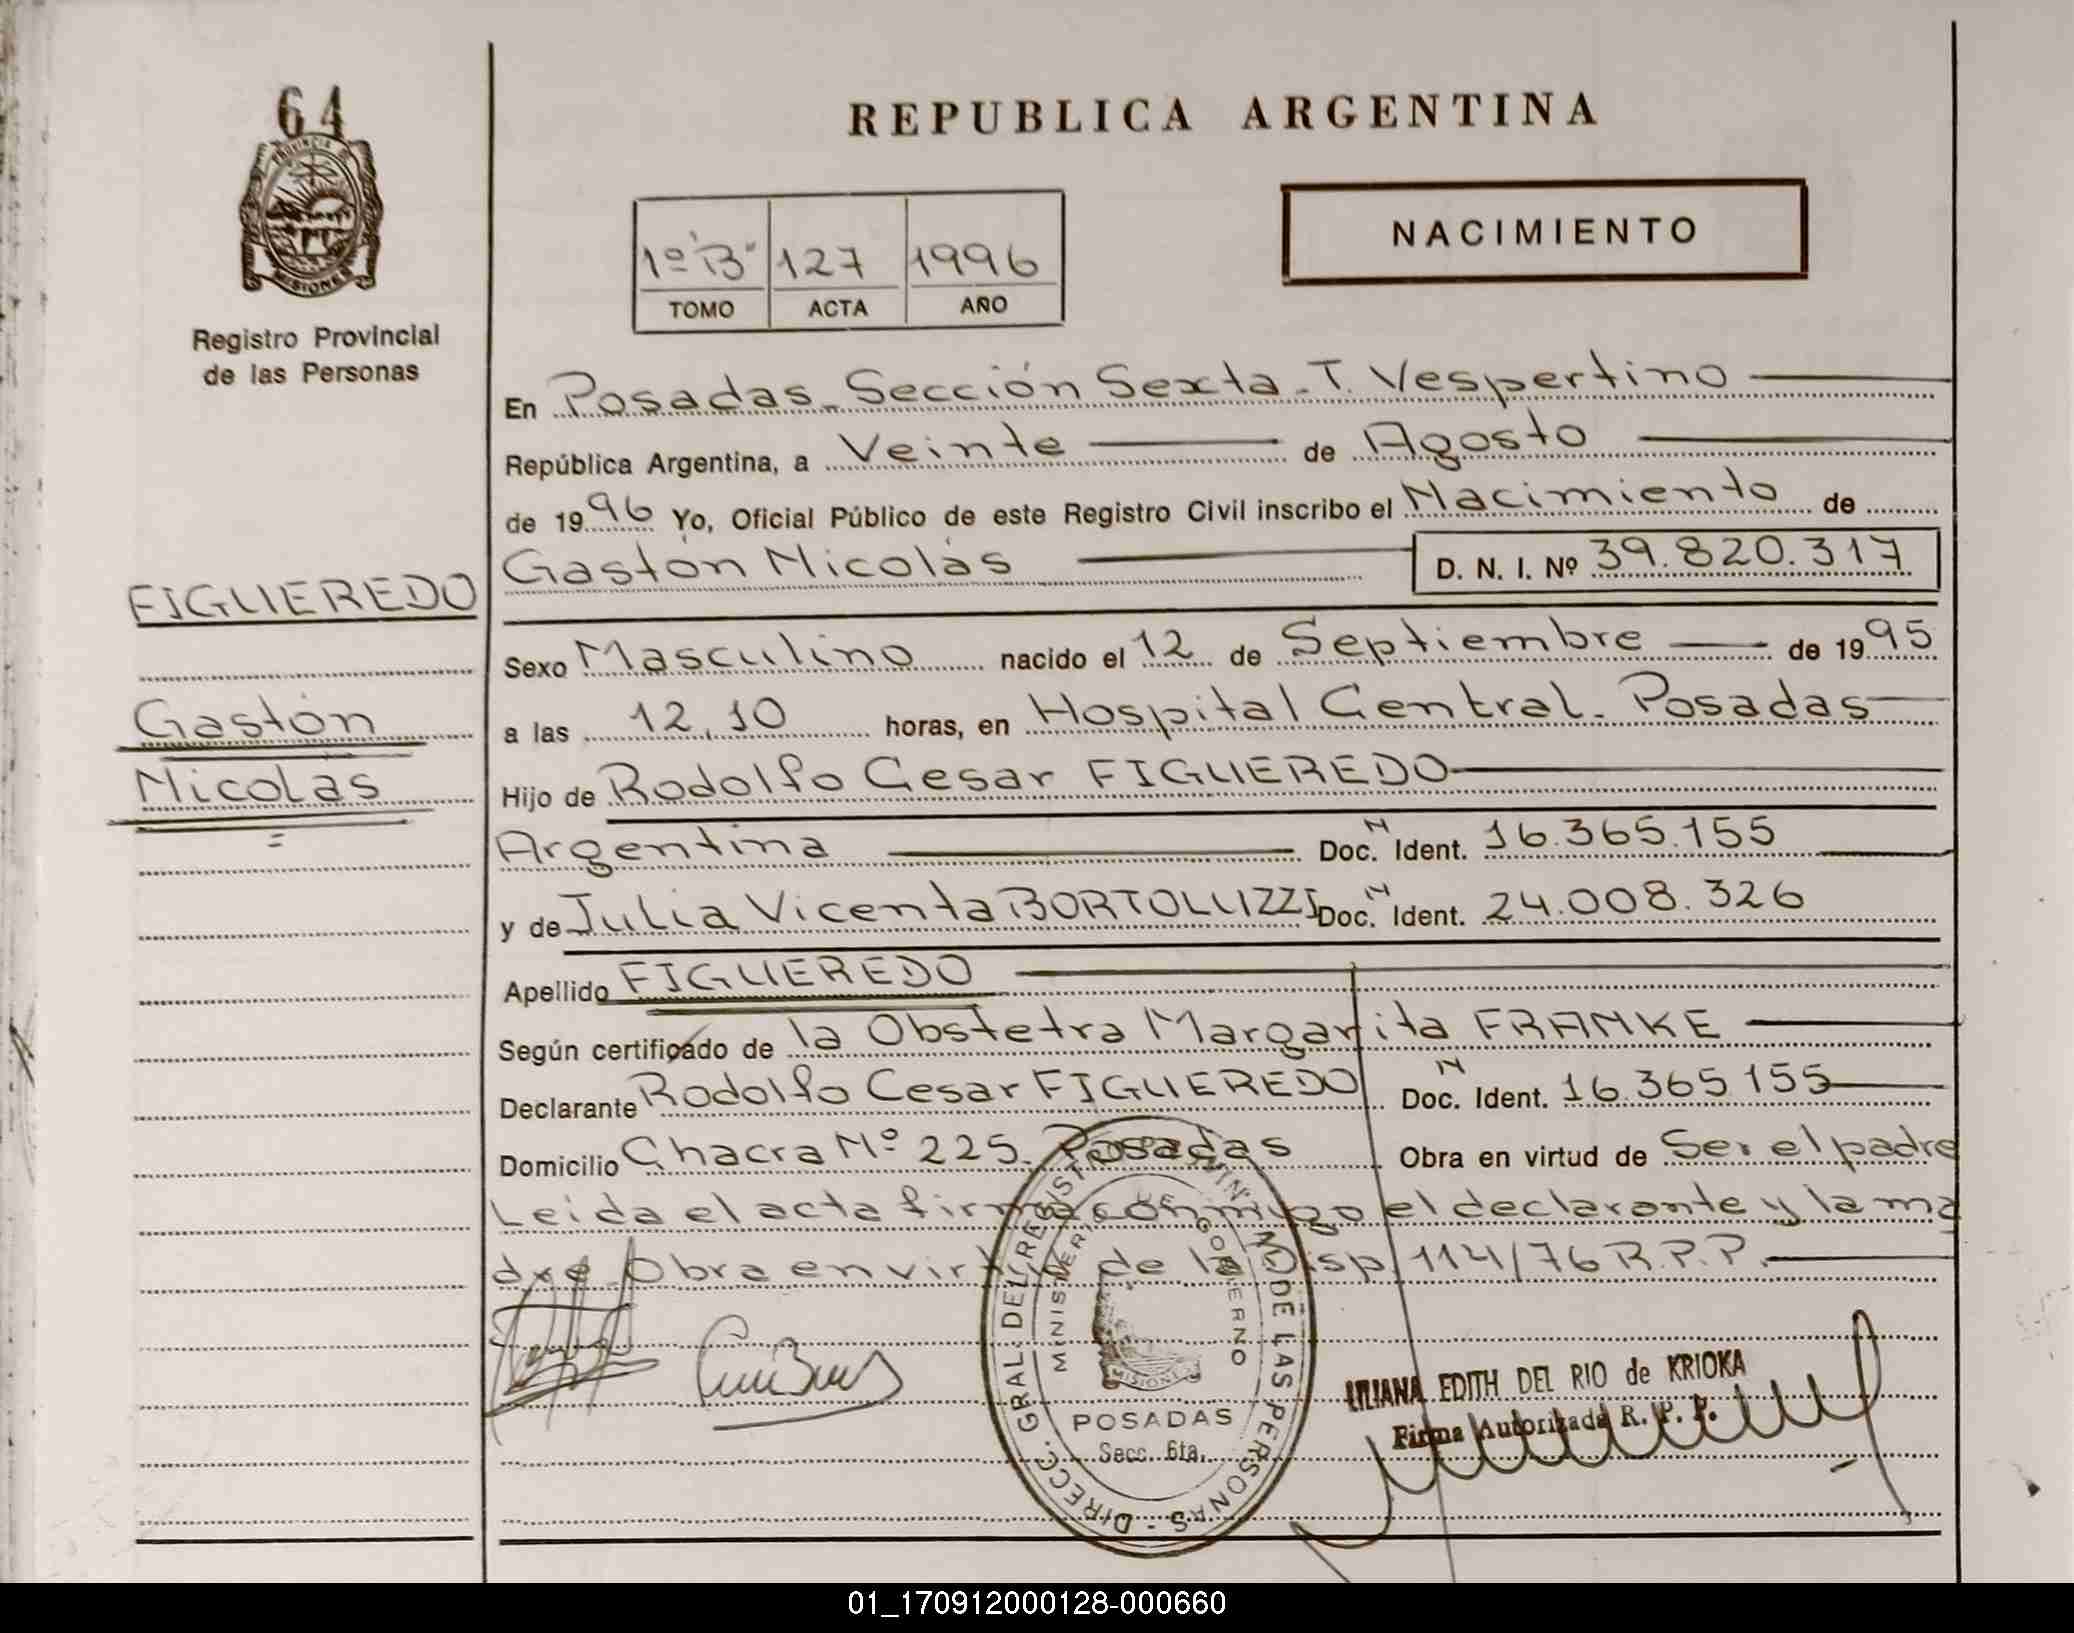 64
PROVINCIA DE
MISIONES
Registro Provincial
de las Personas
REPUBLICA ARGENTINA
1º "B" 127 1996
TOMO ACTA AÑO
NACIMIENTO
En Posadas - Sección Sexta - T. Vespertino
República Argentina, a Veinte de Agosto
de 1996 Yo, Oficial Público de este Registro Civil inscribo el Nacimiento de
Gastón Nicolás D. N. I. Nº 39.820.317
FIGUEREDO
Gastón
Nicolás
Sexo Masculino nacido el 12 de Septiembre de 1995
a las 12,10 horas, en Hospital Central - Posadas
Hijo de Rodolfo Cesar FIGUEREDO
Argentina Doc. N Ident. 16.365.155
y de Julia Vicenta BORTOLUZZI Doc. N Ident. 24.008.326
Apellido FIGUEREDO
Según certificado de la Obstetra Margarita FRANKE
Declarante Rodolfo Cesar FIGUEREDO Doc. N Ident. 16.365.155
Domicilio Chacra Nº 225. Posadas Obra en virtud de Ser el padre
Leida el acta firma conmigo el declarante y la ma
dre. Obra en virtud de la Disp. 114/76 R.P.P.
DIRECC. GRAL. DEL REGIST. PROVIN. DE LAS PERSONAS
MINISTERIO DE GOBIERNO
MISIONES
POSADAS
Secc. 6ta.
LILIANA EDITH DEL RIO de KRIOKA
Firma Autorizada R. P. P.
01_170912000128-000660